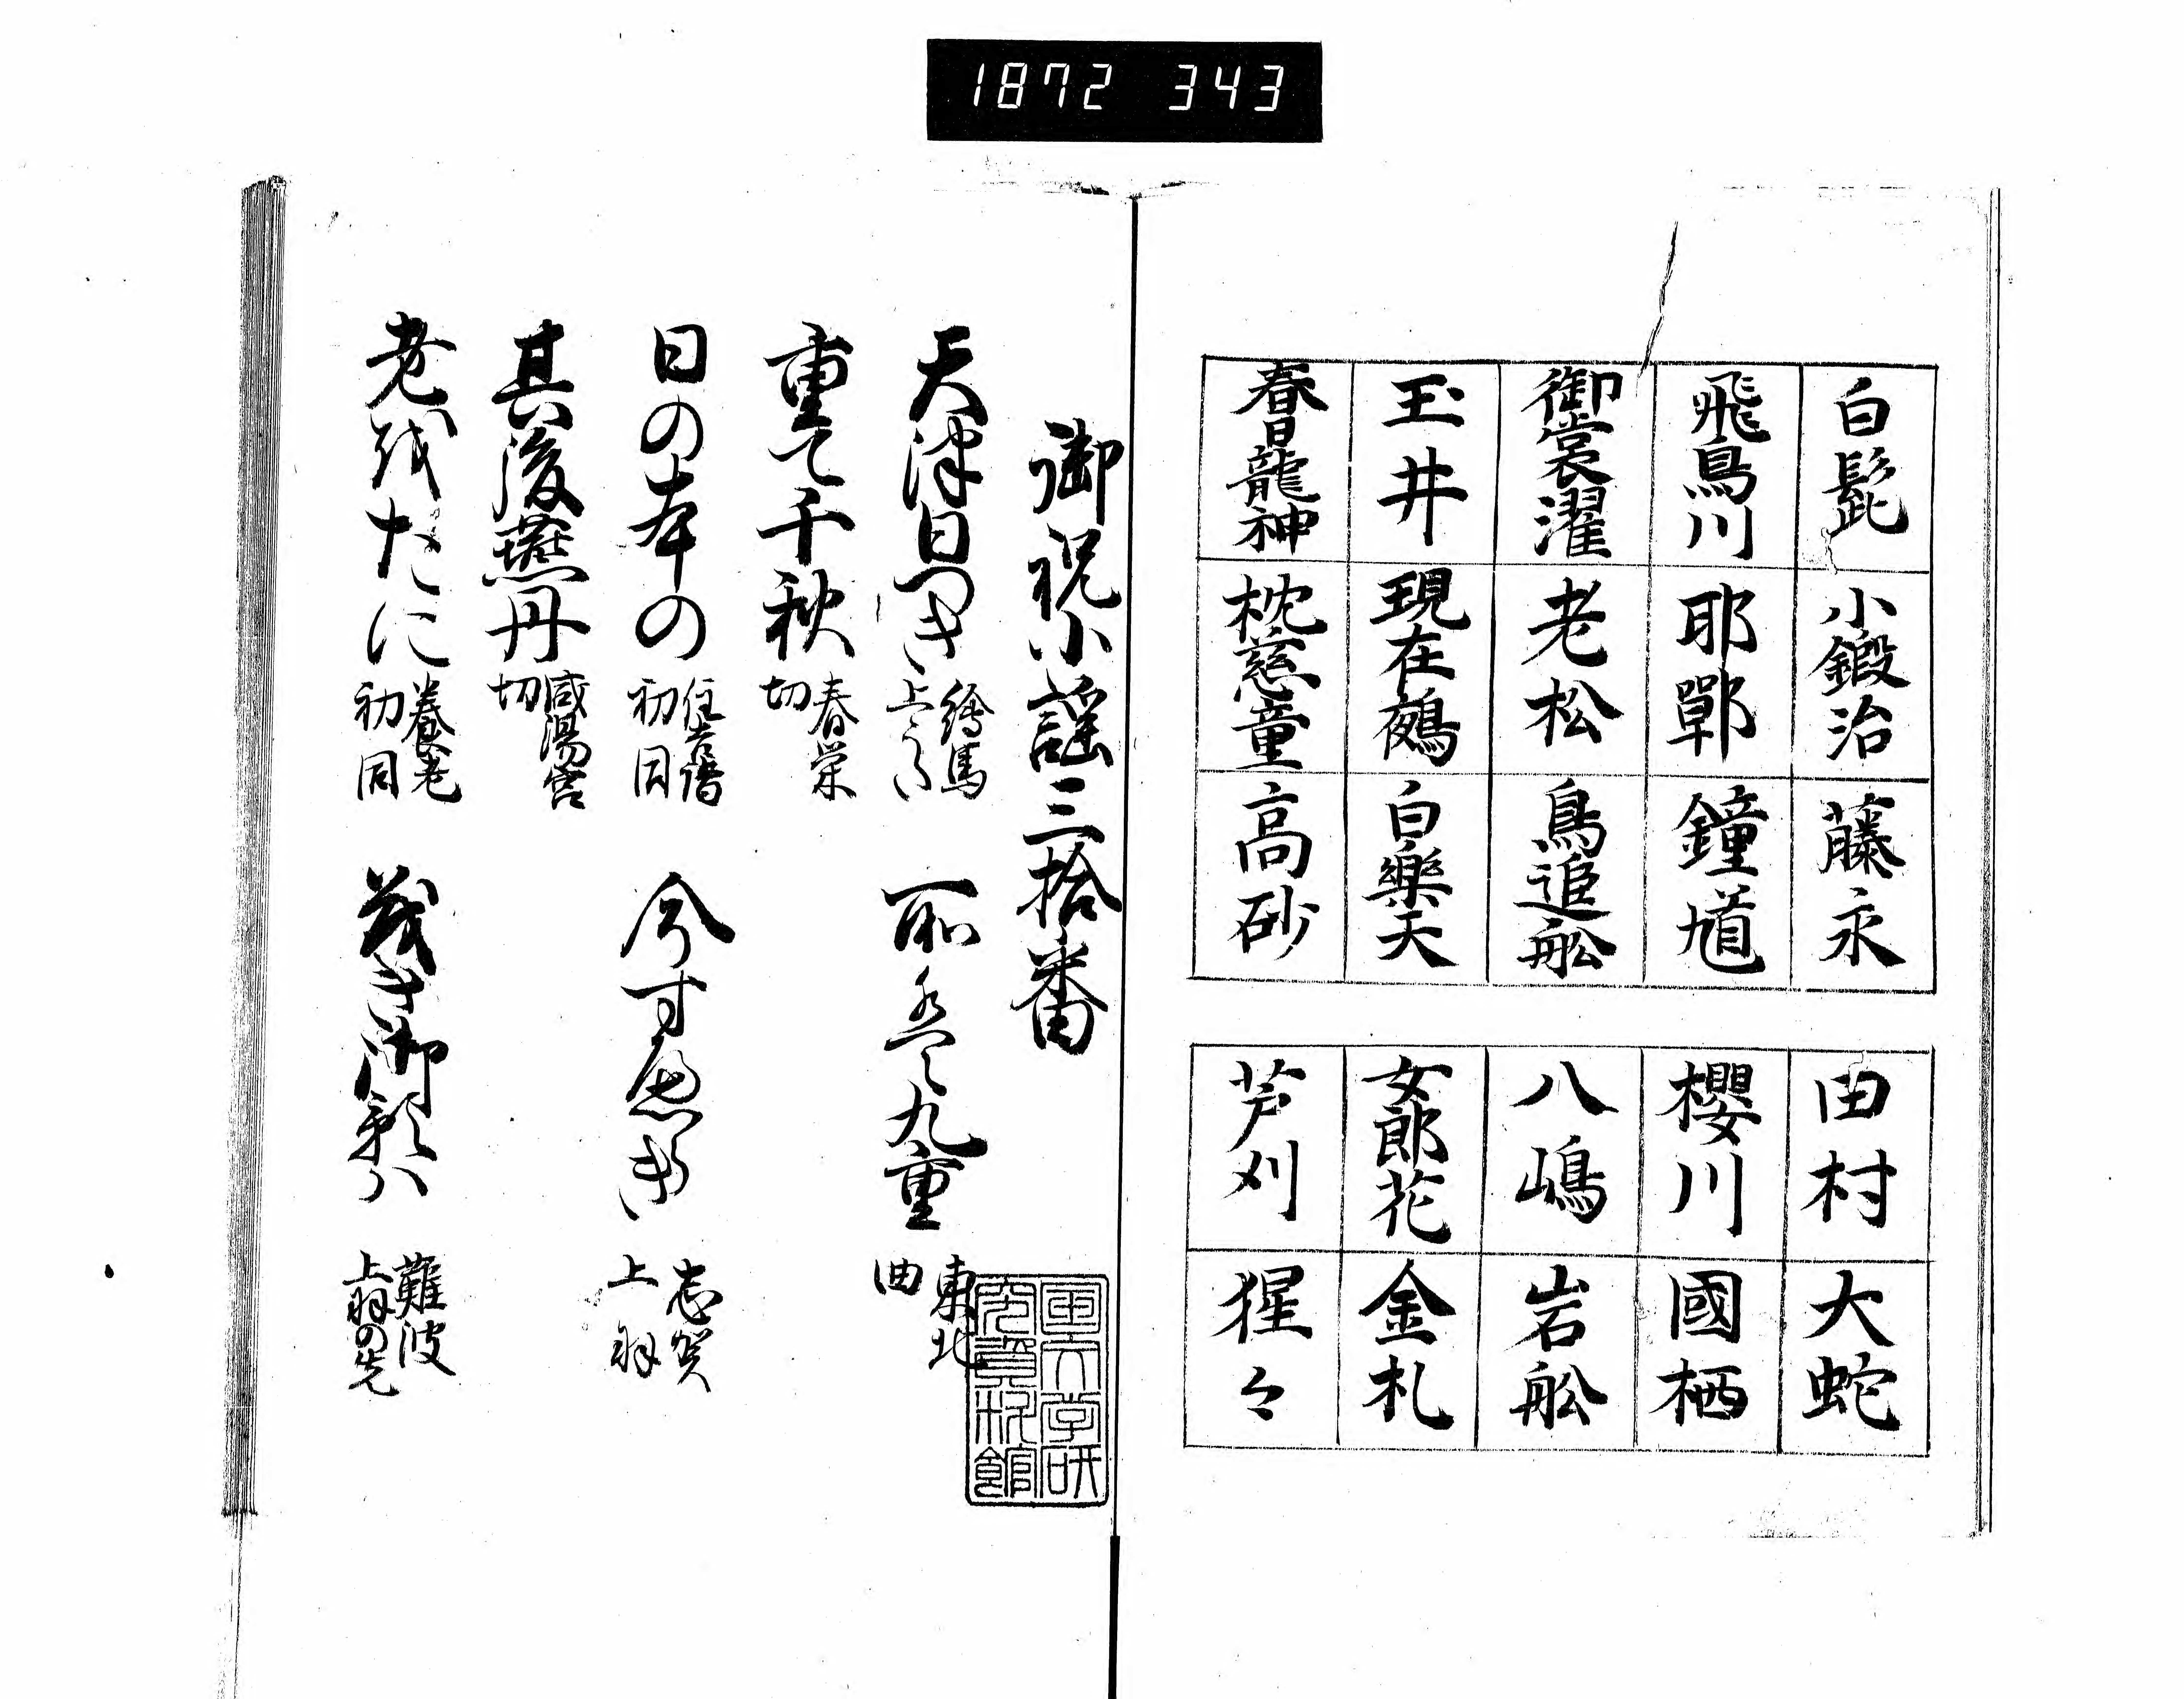 1872 343
白髭 小鍛治 藤永
飛鳥川 耶鄲 鐘馗
御裳濯 老松 鳥追舩
玉井 現在鵺 白樂天
春日龍神 枕慈童 高砂
田村 大蛇
櫻川 國栖
八嶋 岩舩
女郎花 金札
芦刈 猩々
御祝小謡三拾番
天津日つき 繪馬 上
所は九重 東北 曲
重て千秋 春栄 切
日の本の 住吉詣 初同
今す 志賀 上羽
其後燕丹 咸陽宮 切
老をたに 養老 初同
茂き御影ハ 難波 上羽の先
国文学研
究資料館